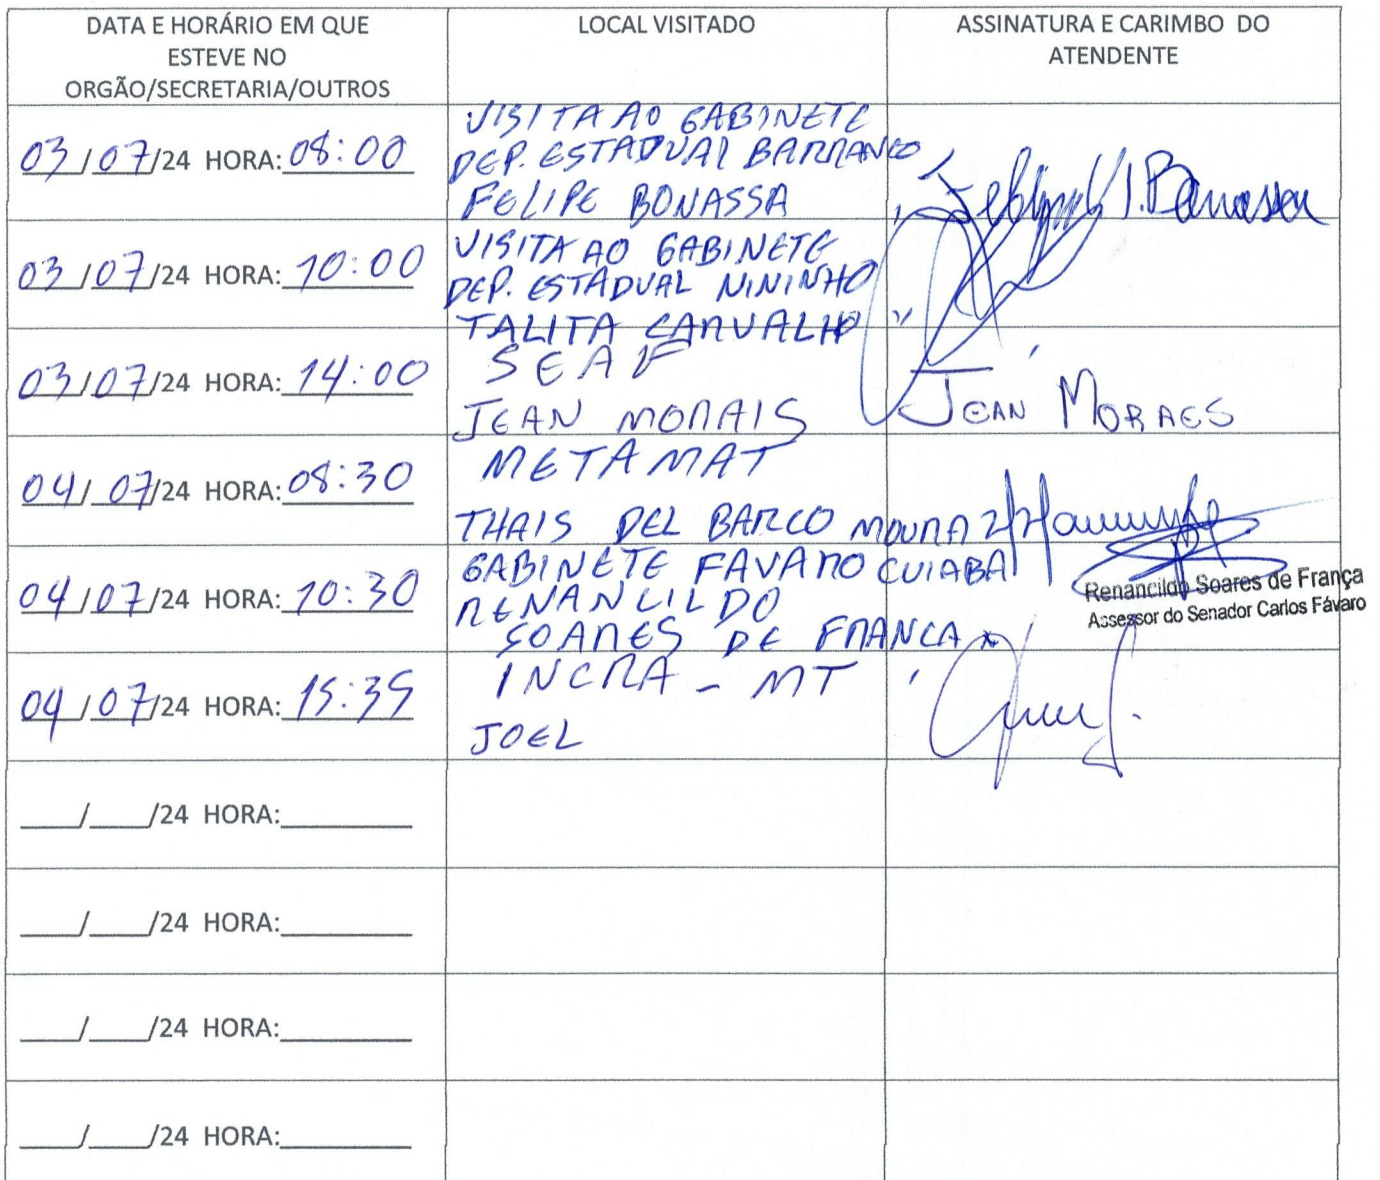 DATA E HORÁRIO EM QUE
ESTEVE NO
ORGÃO/SECRETARIA/OUTROS
LOCAL VISITADO
ASSINATURA E CARIMBO DO
ATENDENTE
03/07/24 HORA: 08:00
VISITA AO GABINETE
DEP. ESTADUAL BARRANCO
FELIPE BONASSA
03/07/24 HORA: 10:00
VISITA AO GABINETE
DEP. ESTADUAL NININHO
TALITA CARVALHO
03/07/24 HORA: 14:00
SEAF
JEAN MORAIS
JEAN MORAES
04/07/24 HORA: 08:30
METAMAT
THAIS DEL BARCO MOURA
04/07/24 HORA: 10:30
GABINETE FAVARO CUIABA
RENANCILDO
SOARES DE FRANCA
Renancildo Soares de França
Assessor do Senador Carlos Fávaro
04/07/24 HORA: 15:35
INCRA - MT
JOEL
___/___/24 HORA:______
___/___/24 HORA:______
___/___/24 HORA:______
___/___/24 HORA:______